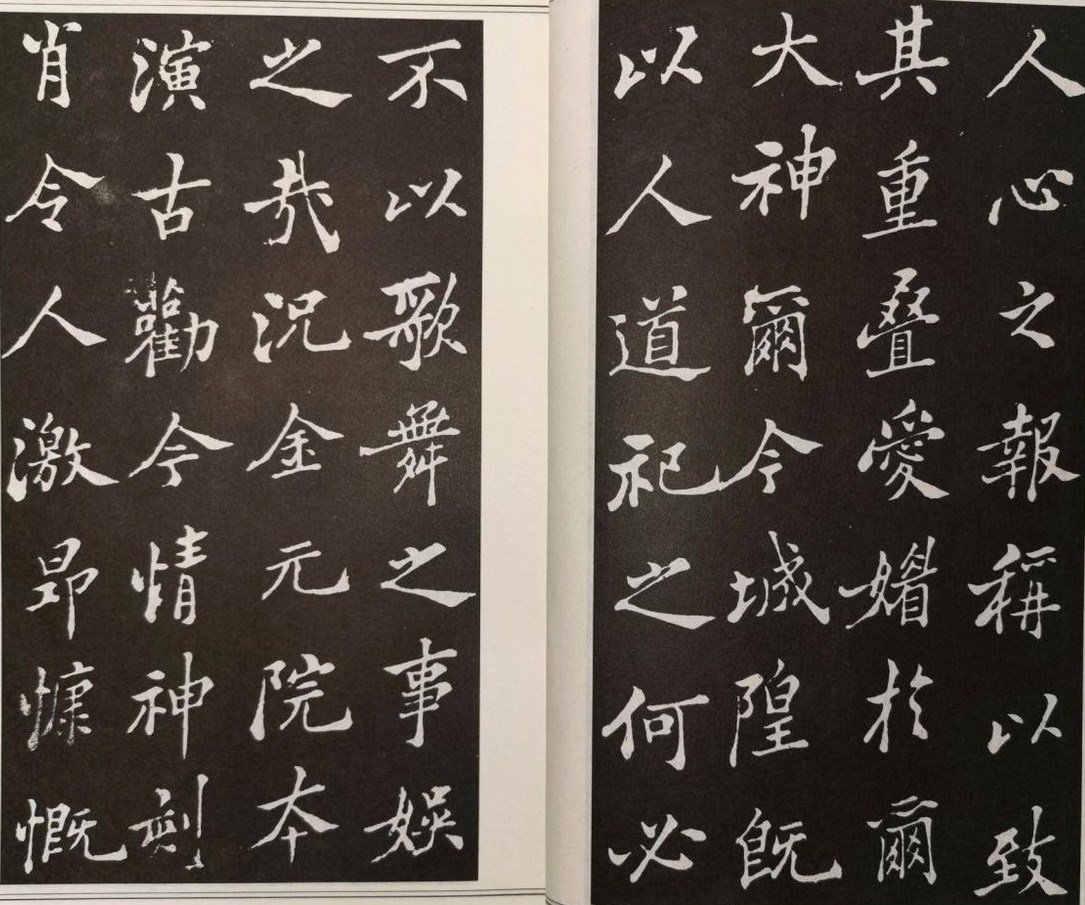 人心之報稱以致
其重叠愛媚於爾
大神爾今城隍既
以人道祀之何必
不以歌舞之事娛
之哉況金元院本
演古勸今情神刻
肖令人激昂慷慨